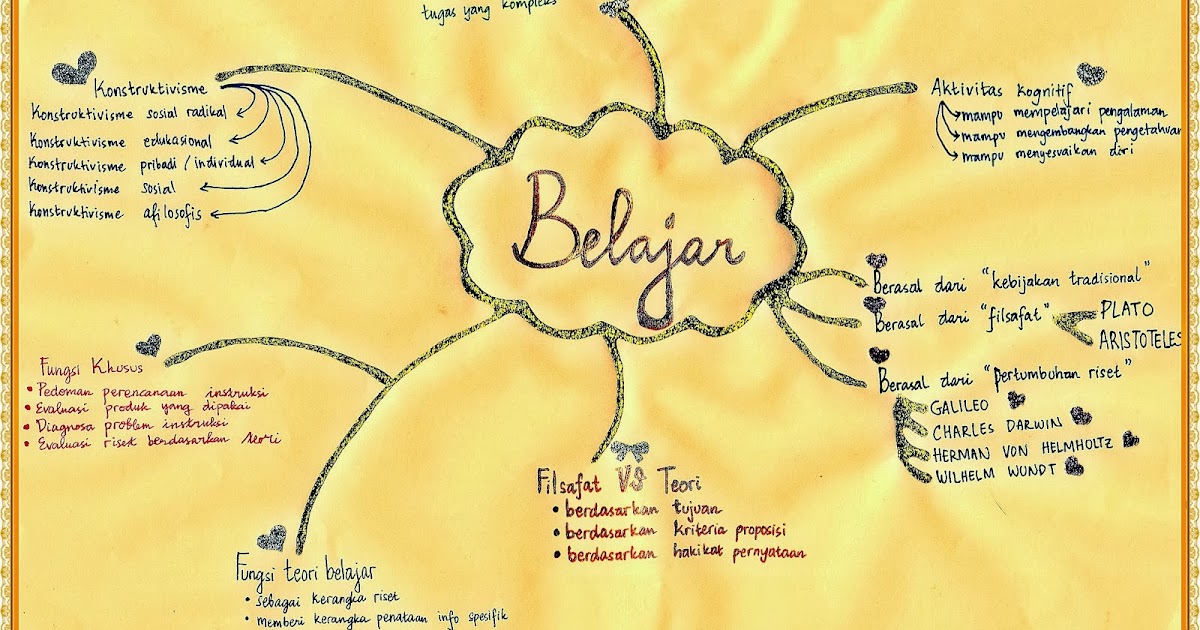 tugas yang kompleks
Konstruktivisme
Konstruktivisme sosial radikal
Konstruktivisme edukasional
Konstruktivisme pribadi / individual
Konstruktivisme sosial
Konstruktivisme afilosofis
Aktivitas kognitif
mampu mempelajari pengalaman
mampu mengembangkan pengetahuan
mampu menyesuaikan diri
Belajar
Berasal dari "kebijakan tradisional"
Berasal dari "filsafat"
PLATO
ARISTOTELES
Berasal dari "pertumbuhan riset"
GALILEO
CHARLES DARWIN
HERMAN VON HELMHOLTZ
WILHELM WUNDT
Fungsi Khusus
• Pedoman perencanaan instruksi
• Evaluasi produk yang dipakai
• Diagnosa problem instruksi
• Evaluasi riset berdasarkan teori
Filsafat VS Teori
• berdasarkan tujuan
• berdasarkan kriteria proposisi
• berdasarkan hakikat pernyataan
Fungsi teori belajar
• sebagai kerangka riset
• memberi kerangka penataan info spesifik